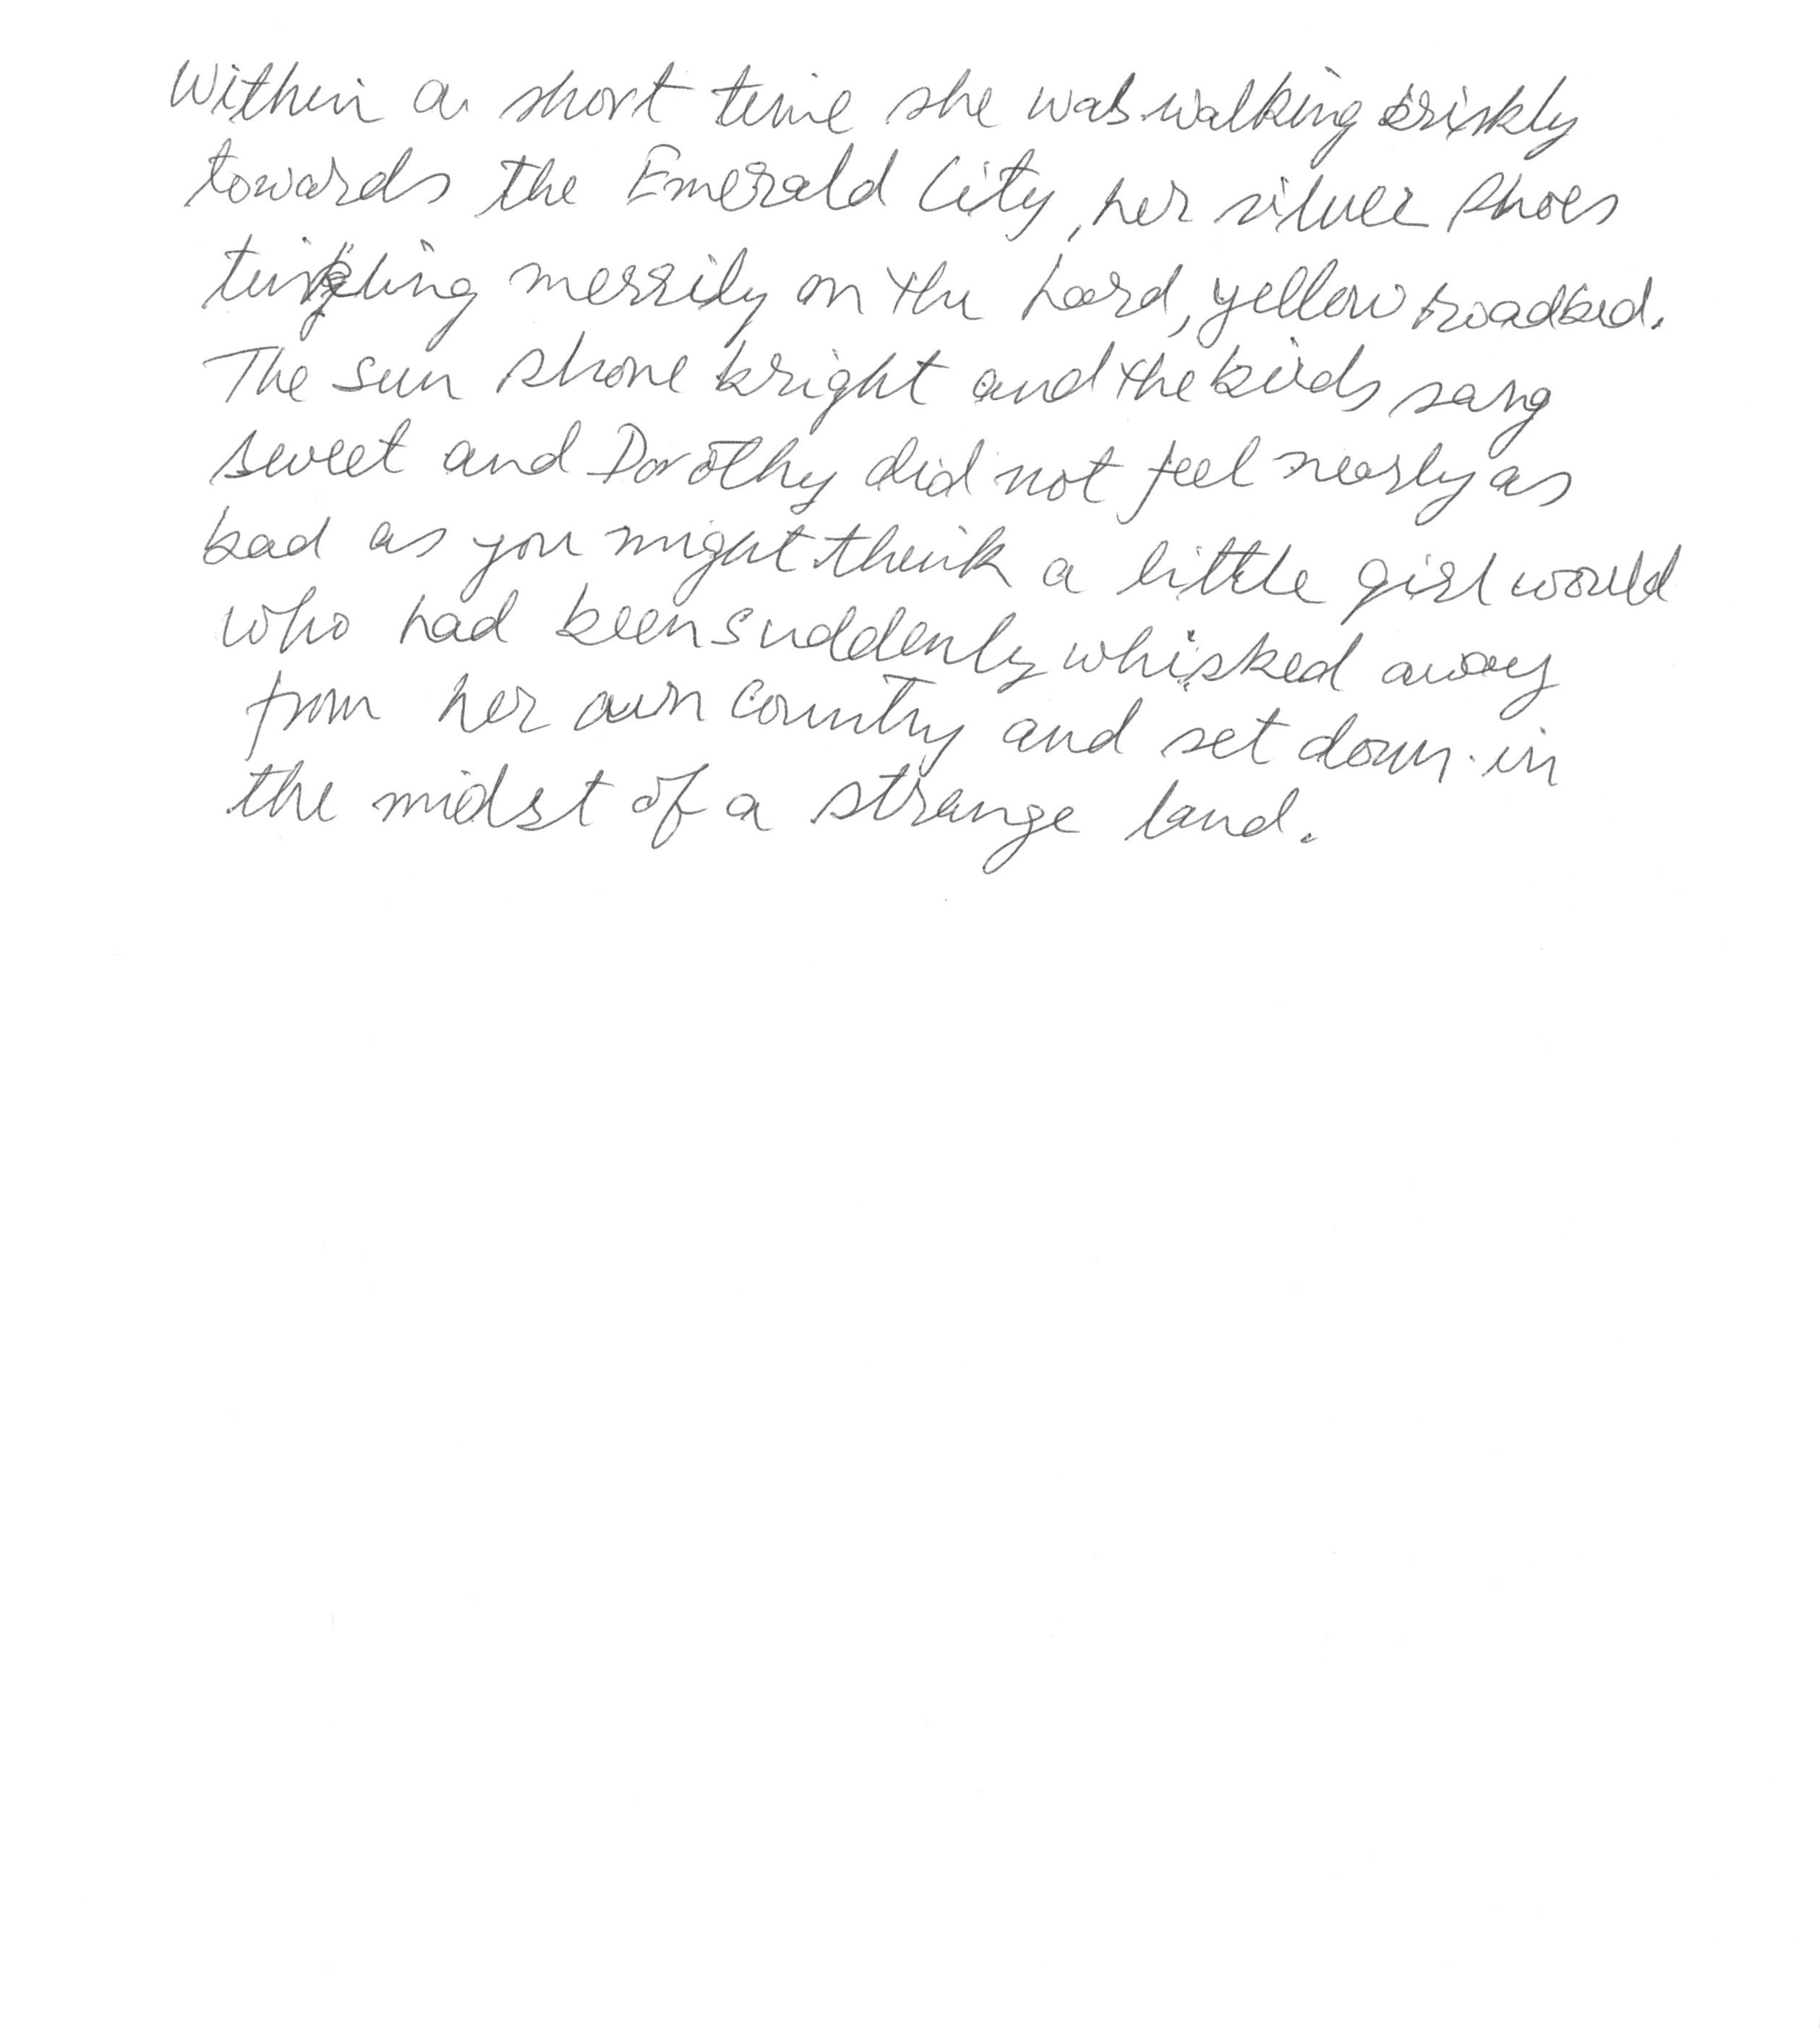 Within a short time she was walking briskly
towards the Emerald City, her silver shoes
tinkling merrily on the hard, yellow roadbed.
The sun shone bright and the birds sang
sweet and Dorothy did not feel nearly as
bad as you might think a little girl would
who had been suddenly whisked away
from her own country and set down in
the midst of a strange land.